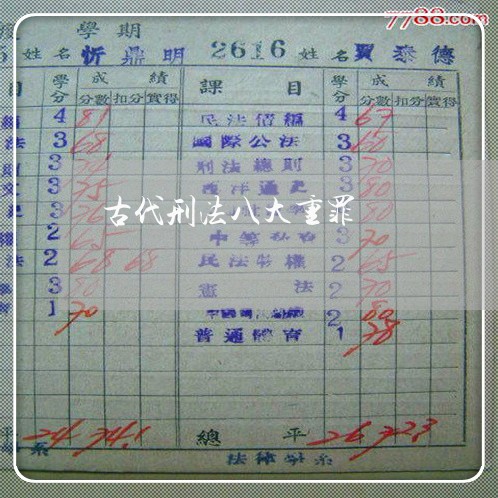 7788.com
學期
姓名 忻鼎明 2616 姓名 賈泰德
目 學分 成績 課目 學分 成績
分數 扣分 實得 分數 扣分 實得
4 81 民法債編 4 67
法 3 68 國際公法 3 60
3 刑法總則 3 70
3 75 西洋通史 3 80
古代刑法八大重罪
2 65 3 70
法 2 68 68 民法物權 2 65
3 80 憲法 2 70
1 70 2 80
普通體育 1 78
平 24 74.1 總平 26 72.3
系 法律學系